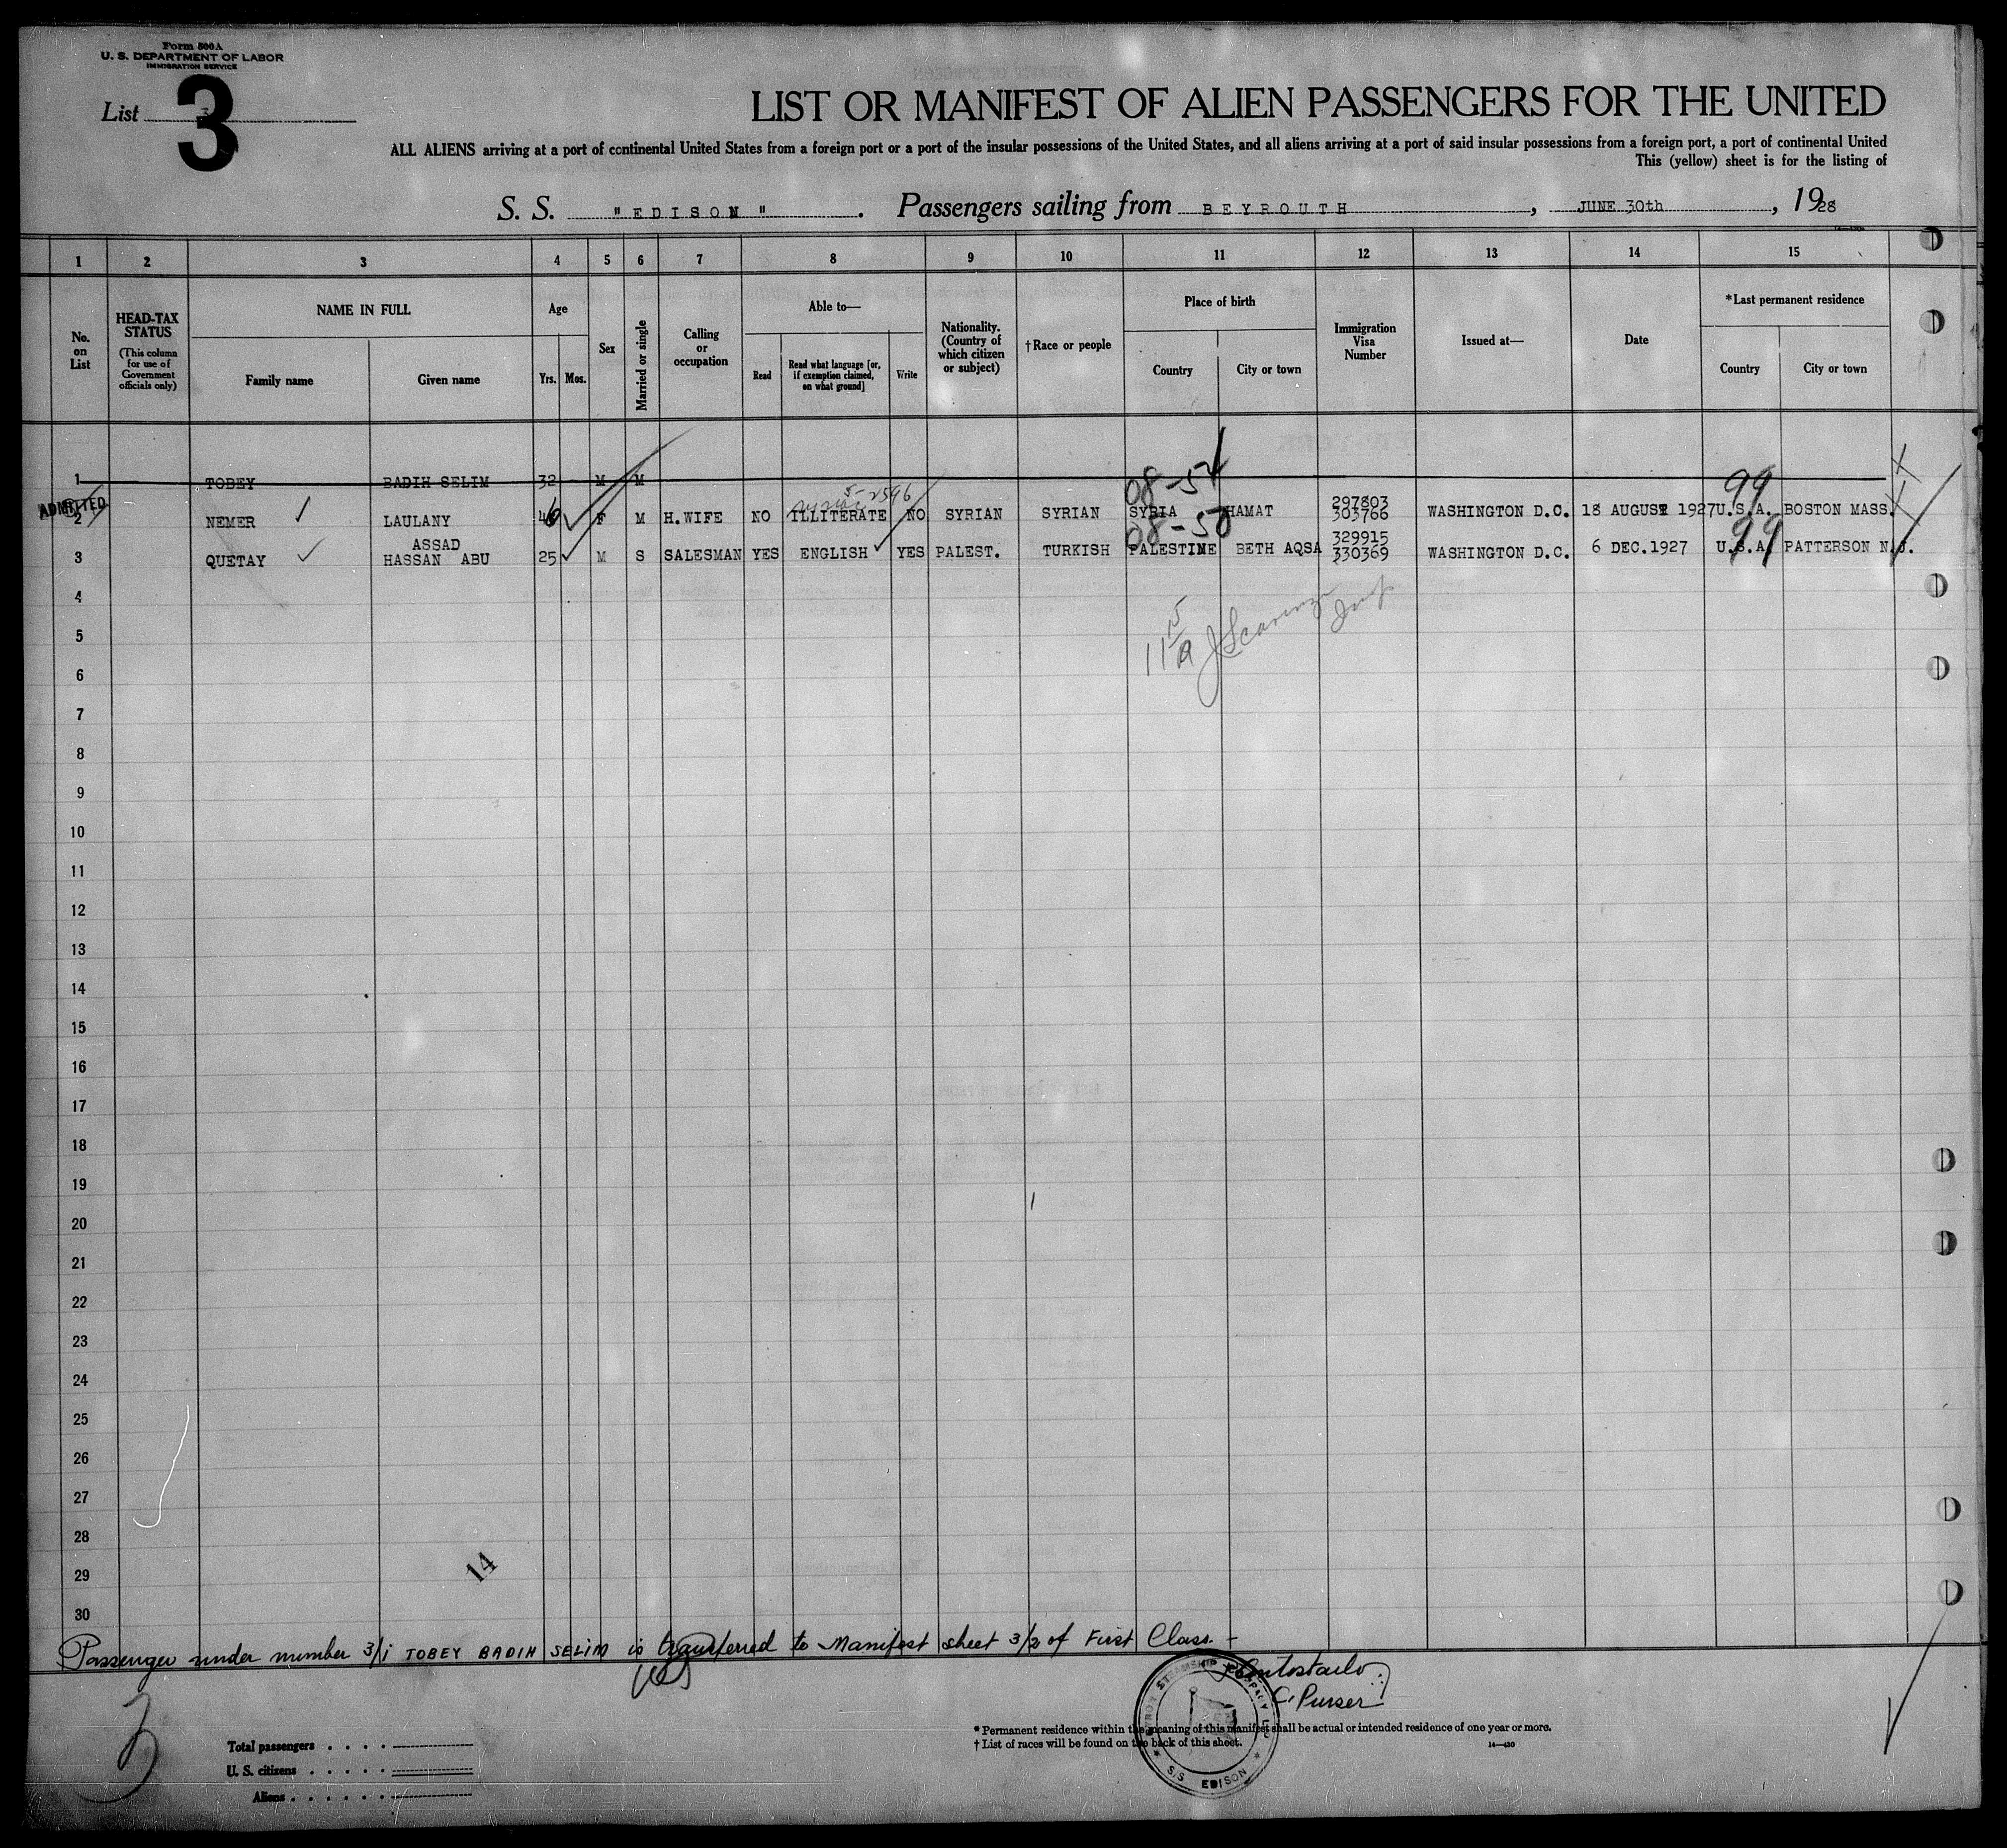 Form 500A
U. S. DEPARTMENT OF LABOR
IMMIGRATION SERVICE
List 3
3
LIST OR MANIFEST OF ALIEN PASSENGERS FOR THE UNITED
ALL ALIENS arriving at a port of continental United States from a foreign port or a port of the insular possessions of the United States, and all aliens arriving at a port of said insular possessions from a foreign port, a port of continental United
This (yellow) sheet is for the listing of
S. S. "EDISON". Passengers sailing from BEYROUTH, JUNE 30th, 1928
1 2 3 4 5 6 7 8 9 10 11 12 13 14 15
No. on List
HEAD-TAX STATUS (This column for use of Government officials only)
NAME IN FULL
Family name
Given name
Age
Yrs. Mos.
Sex
Married or single
Calling or occupation
Able to—
Read
Read what language [or, if exemption claimed, on what ground]
Write
Nationality. (Country of which citizen or subject)
†Race or people
Place of birth
Country
City or town
Immigration Visa Number
Issued at—
Date
*Last permanent residence
Country
City or town
1 TOBEY BADIH SELIM 32 M M
08-54 99
5-2596
ADMITTED
2 NEMER LAULANY 46 F M H.WIFE NO ILLITERATE NO SYRIAN SYRIAN SYRIA HAMAT 297803 303766 WASHINGTON D.C. 18 AUGUST 1927 U.S.A. BOSTON MASS.
08-50 99
3 QUETAY ASSAD HASSAN ABU 25 M S SALESMAN YES ENGLISH YES PALEST. TURKISH PALESTINE BETH AQSA 329915 330369 WASHINGTON D.C. 6 DEC.1927 U.S.A. PATTERSON N.J.
4
5
6
7
8
9
10
11
12
13
14
15
16
17
18
19
20
21
22
23
24
25
26
27
28
29
14
30
Passenger under number 3/1 TOBEY BADIH SELIM is transferred to Manifest sheet 3/2 of First Class. -
Purser
* Permanent residence within the meaning of this manifest shall be actual or intended residence of one year or more.
† List of races will be found on the back of this sheet.
14—430
STEAMSHIP COMPANY LTD
S/S EDISON
Total passengers
U. S. citizens
Aliens